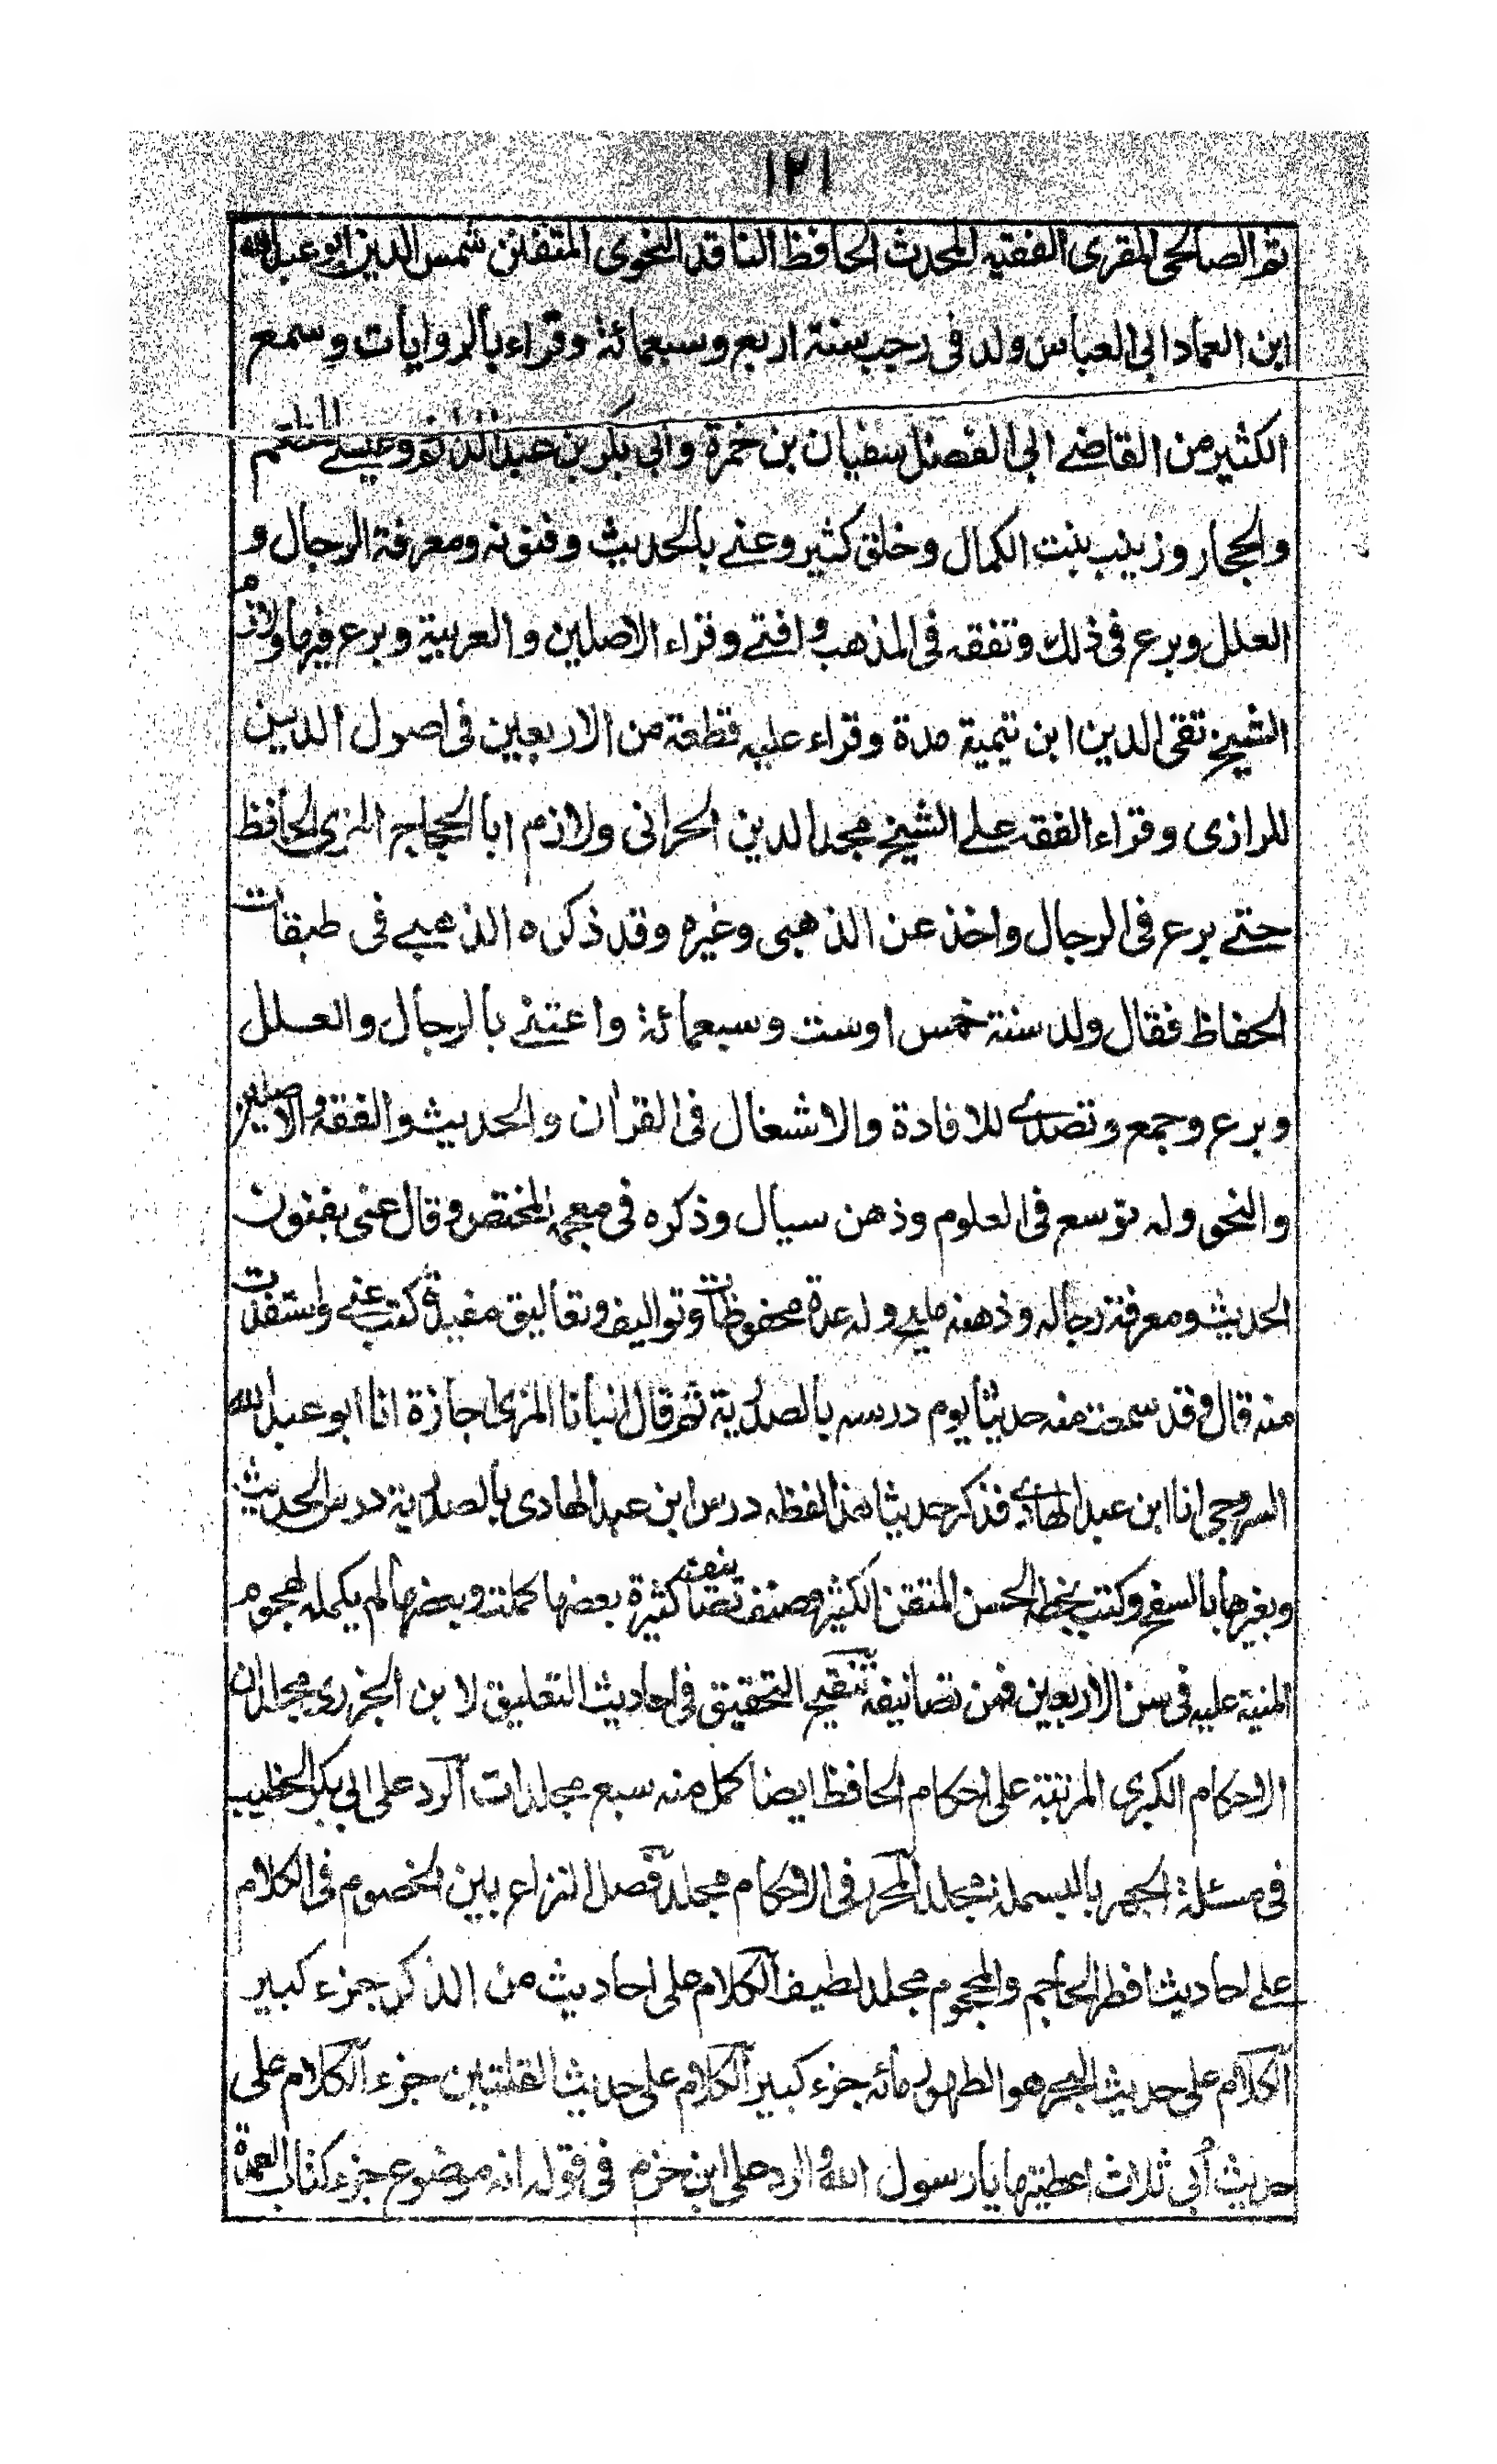 ١٢١
ثم الصالحى المقرى الفقيه المحدث الحافظ الناقد النحوى المتفنن شمس الدين ابو عبد الله
ابن العماد ابى العباس ولد فى رجب سنة اربع وسبعمائة وقراء بالروايات وسمع
الكثير من القاضے ابى الفضل سفيان بن حمزة وابى بكر بن عبد الدائم وعيسے المطعم
والحجار وزينب بنت الكمال وخلق كثير وعنے بالحديث وفنونه ومعرفة الرجال و
العلل وبرع فى ذلك وتفقه فى المذهب وافتے وقراء الاصلين والعربية وبرع فيها ولازم
الشيخ تقى الدين ابن تيمية مدة وقراء عليه قطعة من الاربعين فى اصول الدين
للرازى وقراء الفقه علے الشيخ مجد الدين الحرانى ولازم ابا الحجاج المزى الحافظ
حتے برع فى الرجال واخذ عن الذهبى وغيره وقد ذكره الذهبے فى طبقات
الحفاظ فقال ولد سنة خمس اوست وسبعمائة واعتنے بالرجال والعلل
وبرع وجمع وتصدے للافادة والاشغال فى القران والحديث والفقه والاصلين
والنحو وله توسع فى العلوم وذهن سيال وذكره فى معجمه المختص وقال عنى بفنون
الحديث ومعرفة رجاله وذهنه مليح وله عدة محفوظات وتواليف وتعاليق مفيدة كتب عنے واستفدت
منه قال وقد سمعت منه حديثا يوم درسه بالصدرية ثم قال انبأنا المزى اجازة انا ابو عبد الله
السروجى انا ابن عبد الهادے فذكر حديثا هذا لفظه درس ابن عبد الهادى بالصدرية درس الحديث
وبغيرها بالسفح وكتب بخطه الحسن المتقن الكثير وصنف تصانيف كثيرة بعضها كملت وبعضها لم يكمله لهجوم
المنية عليه فى سن الاربعين فمن تصانيفه تنقيح التحقيق فى احاديث التعليق لابن الجوزى مجلدان
الاحكام الكبرى المرتبة على احكام الحافظ ايضا كمل منه سبع مجلدات الرد على ابى بكر الخطيب
فى مسئلة الجهر بالبسملة مجلد المحرر فى الاحكام مجلد فصل النزاع بين الخصوم فى الكلام
علے احاديث افطر الحاجم والمحجوم مجلد لطيف الكلام على احاديث من الذكر جزء كبير
الكلام على حديث البحر هو الطهور مائه جزء كبير الكلام على حديث القلتين جزء الكلام على
حديث أبى ثلاث اعطيتها يا رسول الله الرد على ابن حزم فى قوله انه موضوع جزء كتاب العمدة